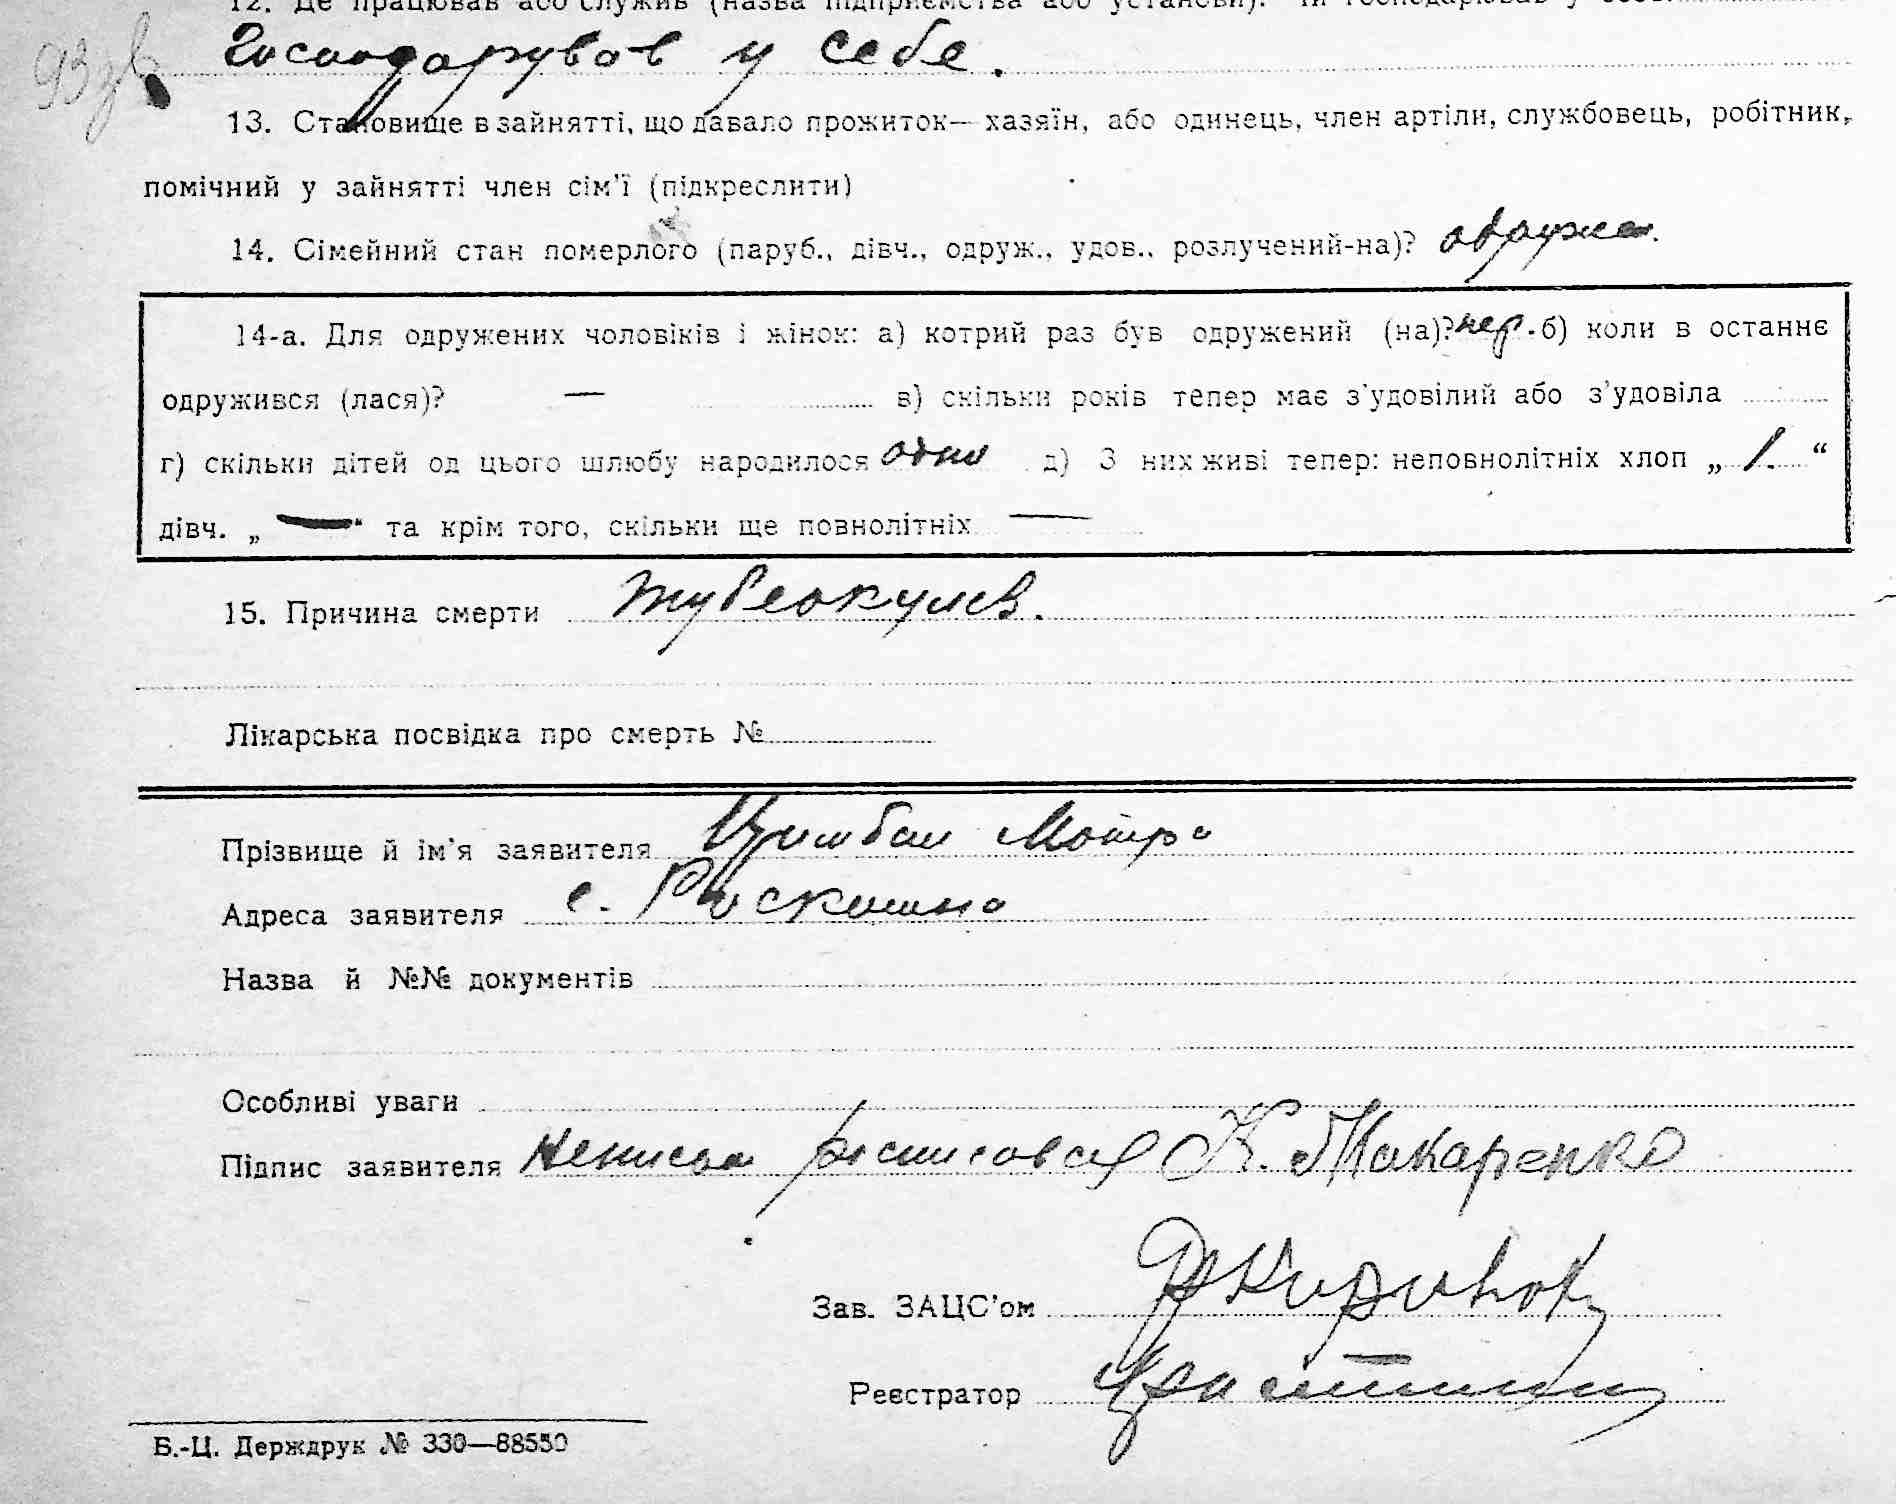 12. Де працював або служив (назва підприємства або установи). Чи господарював у себе
93 зв
Господарував у себе.
13. Становище в зайнятті, що давало прожиток— хазяїн, або одинець, член артіли, службовець, робітник,
помічний у зайнятті член сім'ї (підкреслити)
14. Сімейний стан померлого (паруб., дівч., одруж., удов., розлучений-на)? одружен.
14-а. Для одружених чоловіків і жінок: а) котрий раз був одружений (на)? пер. б) коли в останнє
одружився (лася)? — в) скільки років тепер має з'удовілий або з'удовіла
г) скільки дітей од цього шлюбу народилося одно д) З них живі тепер: неповнолітніх хлоп „ 1. “
дівч. „ — “ та крім того, скільки ще повнолітніх —
15. Причина смерти тубеокульоз.
Лікарська посвідка про смерть №
Прізвище й ім'я заявителя Цимбал Мотра
Адреса заявителя с. Раскошна
Назва й №№ документів
Особливі уваги
Підпис заявителя неписьм росписовся К. Макаренко
Зав. ЗАЦС'ом
Реєстратор
Б.-Ц. Держдрук № 330—88550